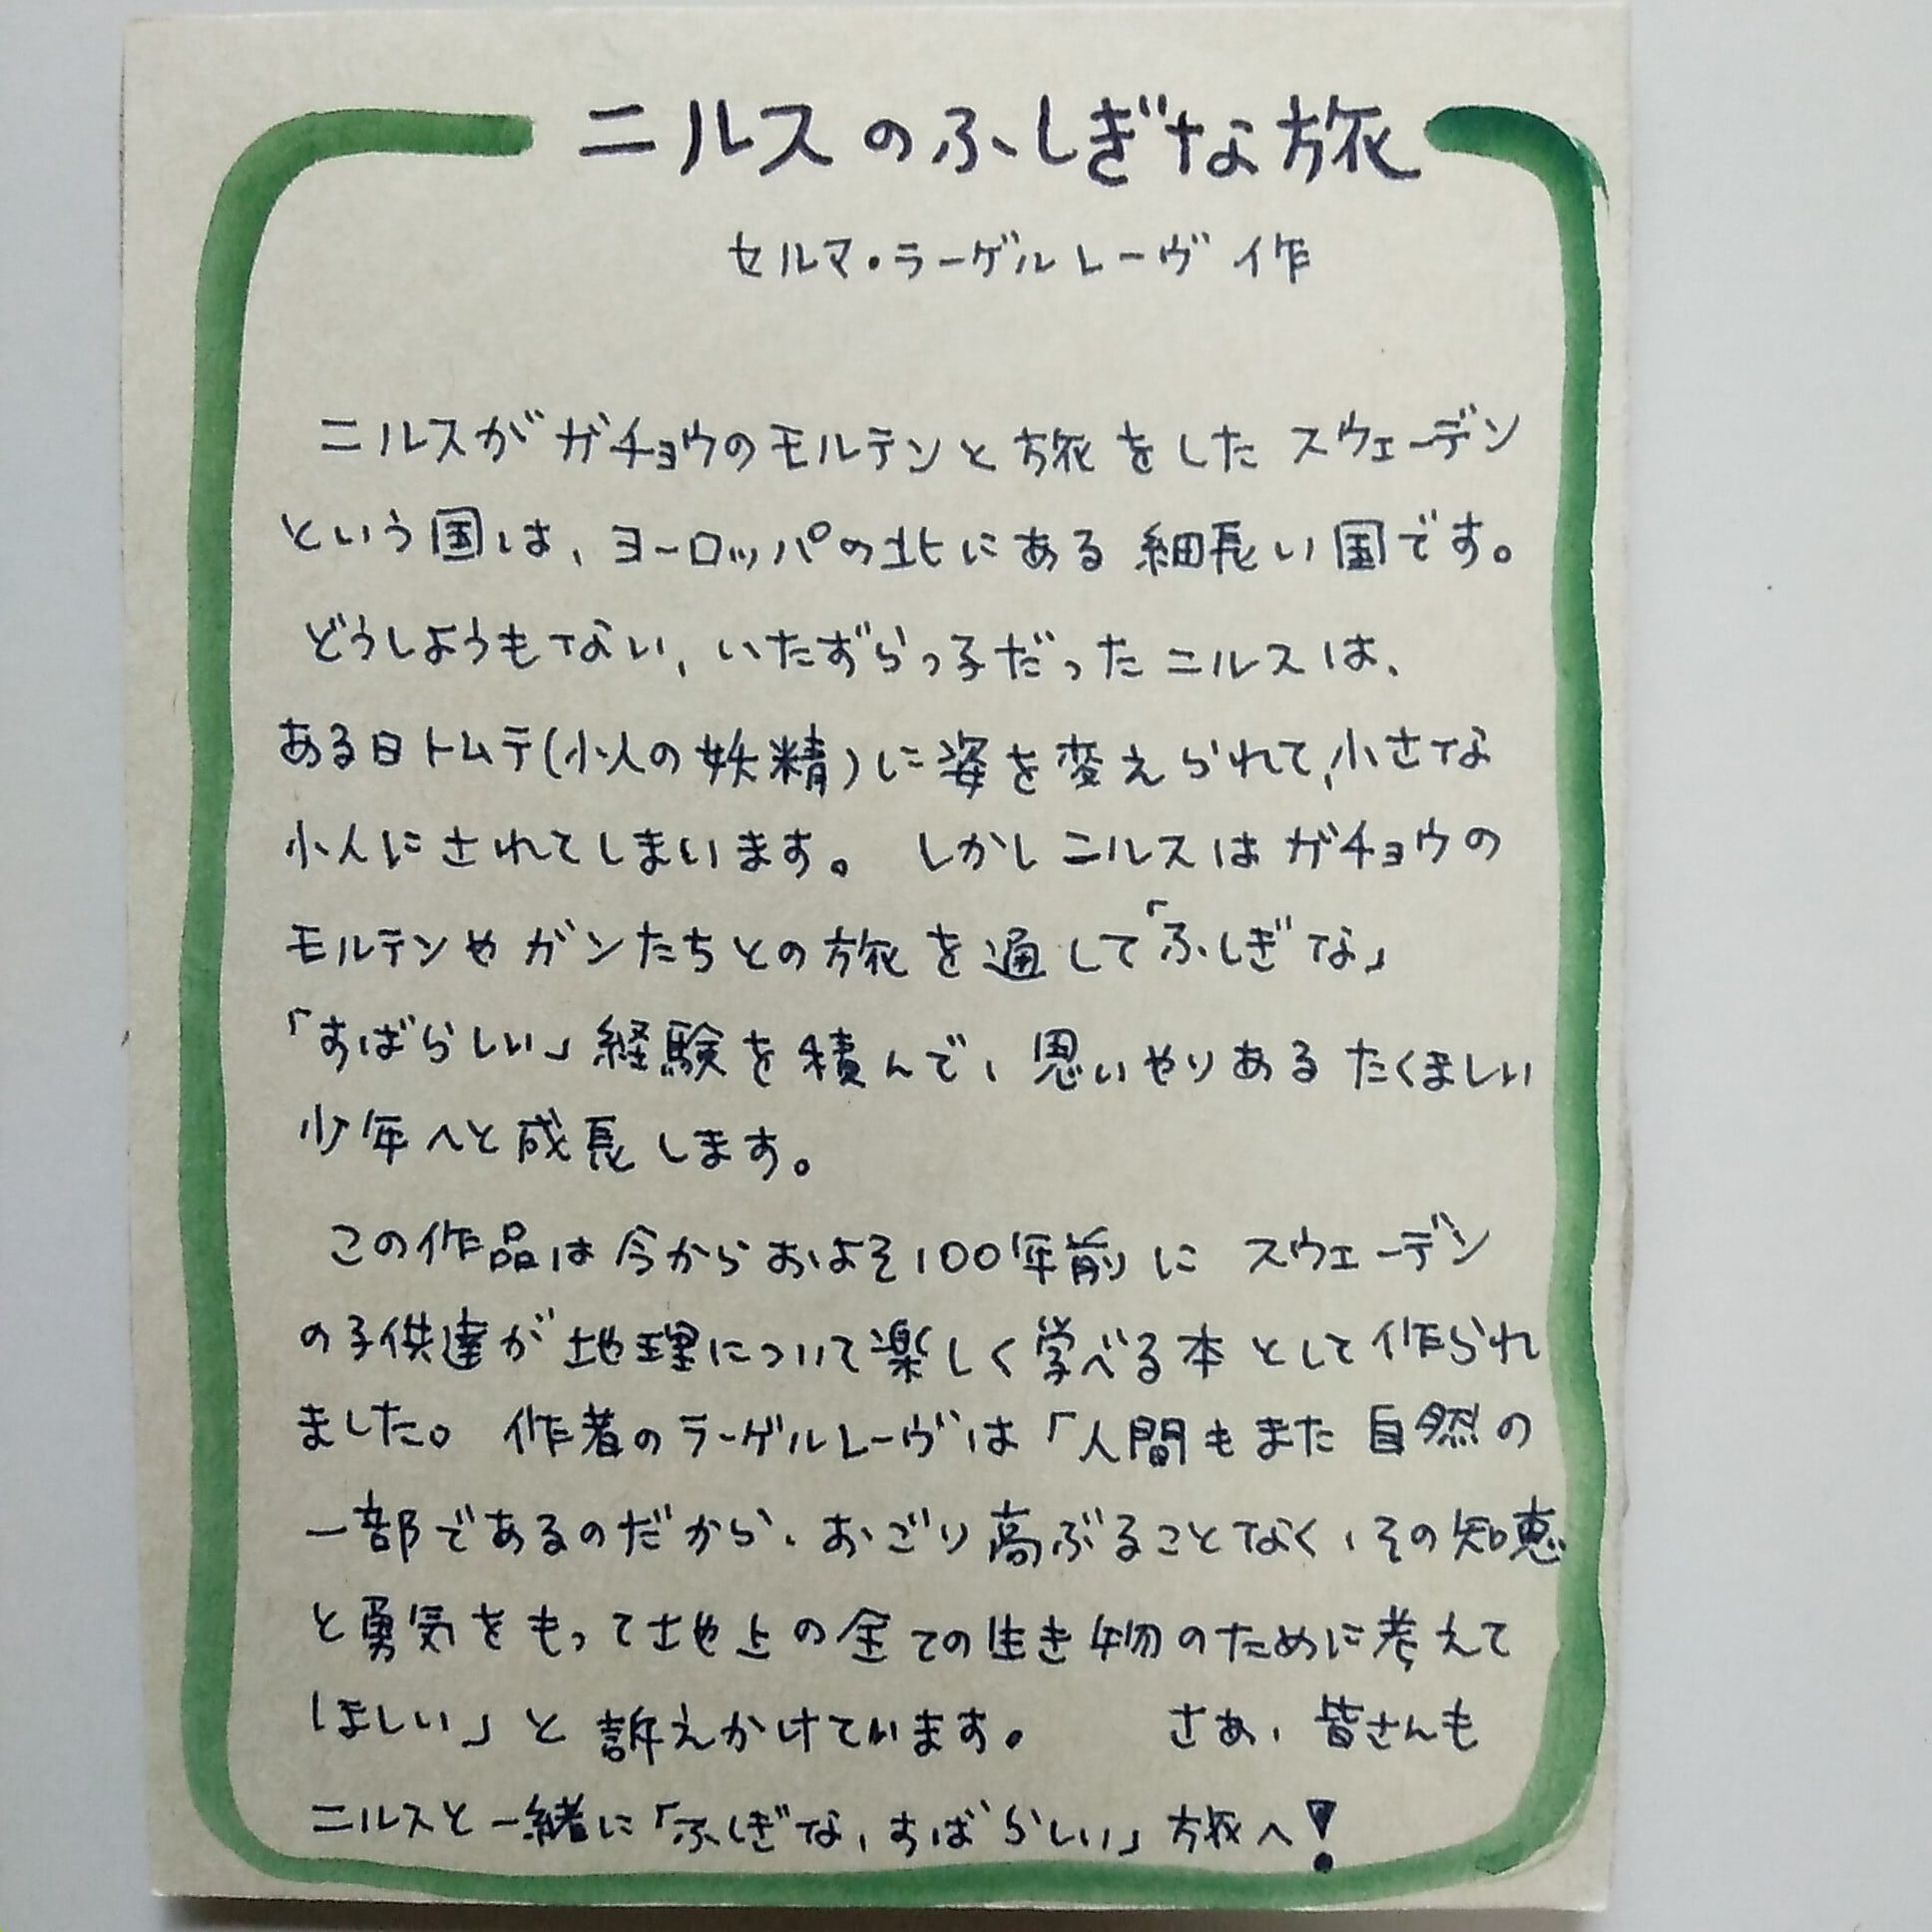 ニルスのふしぎな旅
セルマ・ラーゲルレーヴ 作
ニルスがガチョウのモルテンと旅をしたスウェーデン
という国は、ヨーロッパの北にある細長い国です。
どうしようもない、いたずらっ子だったニルスは、
ある日トムテ(小人の妖精)に姿を変えられて、小さな
小人にされてしまいます。 しかしニルスはガチョウの
モルテンやガンたちとの旅を通して「ふしぎな」
「すばらしい」経験を積んで、思いやりあるたくましい
少年へと成長します。
この作品は今からおよそ100年前に スウェーデン
の子供達が地理について楽しく学べる本として作られ
ました。 作者のラーゲルレーヴは「人間もまた自然の
一部であるのだから、おごり高ぶることなく、その知恵
と勇気をもって地上の全ての生き物のために考えて
ほしい」と訴えかけています。 さあ、皆さんも
ニルスと一緒に「ふしぎな、すばらしい」旅へ！